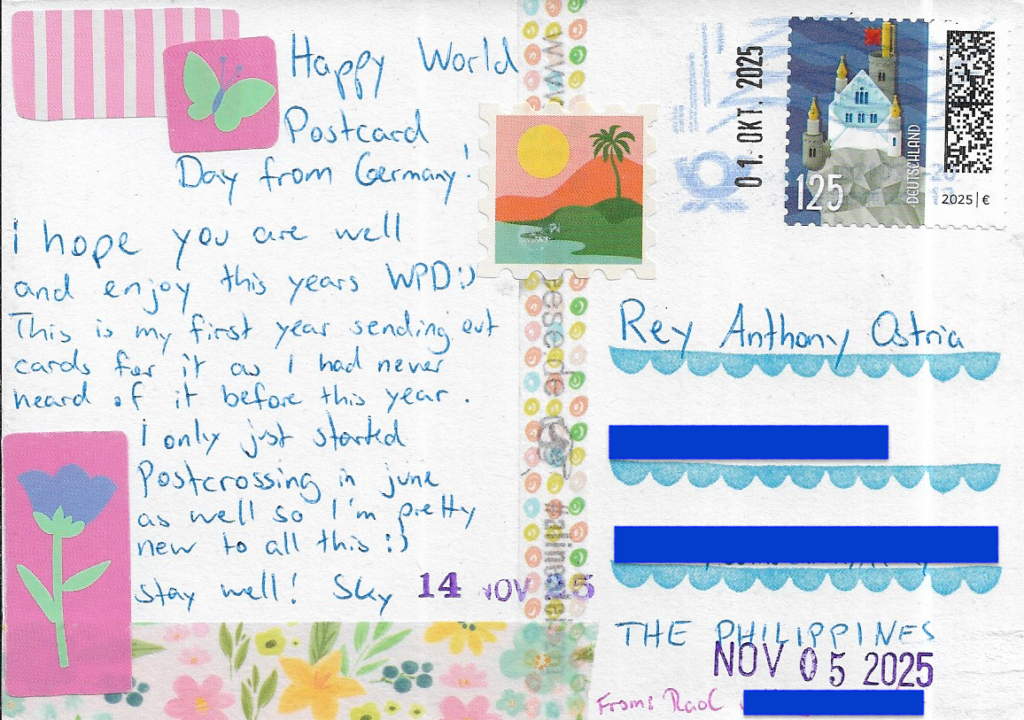 Happy World
Postcard
Day from Germany!
i hope you are well
and enjoy this years WPD:)
This is my first year sending out
cards for it as I had never
heard of it before this year.
I only just started
Postcrossing in june
as well so I'm pretty
new to all this :)
stay well! Sky
14 NOV 25
01. OKT. 2025
125
DEUTSCHLAND
2025 | €
Rey Anthony Ostria
THE PHILIPPINES
NOV 05 2025
From: